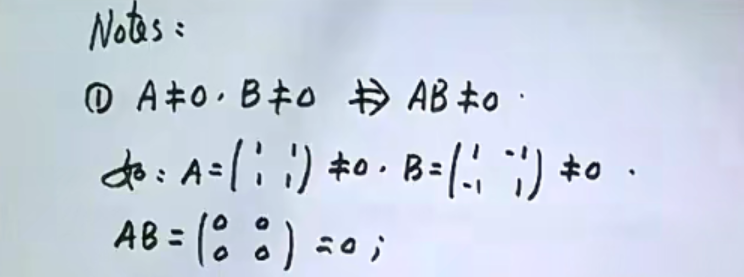 Notes:
① A≠0, B≠0 ⇏ AB≠0.
如: A=(1 1; 1 1)≠0, B=(1 -1; -1 1)≠0.
AB=(0 0; 0 0)=0;